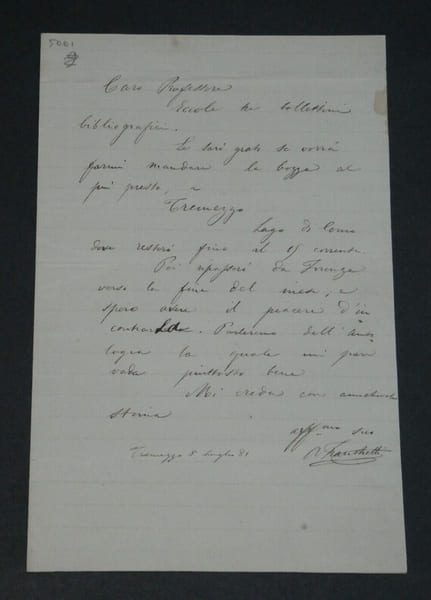 5001
2
Caro Professore
Eccole tre bollettini
bibliografici.
Le sarò grato se vorrà
farmi mandare le bozze al
più presto, a
Tremezzo
Lago di Como
dove resterò fino al 15 corrente.
Poi ripasserò da Firenze
verso la fine del mese, e
spero avere il piacere d'in
contrarLa. Parleremo dell'Anto
logia la quale mi pare
vada piuttosto bene
Mi creda con amichevole
stima
aff.mo suo
Franchetti
Tremezzo 8 luglio 81